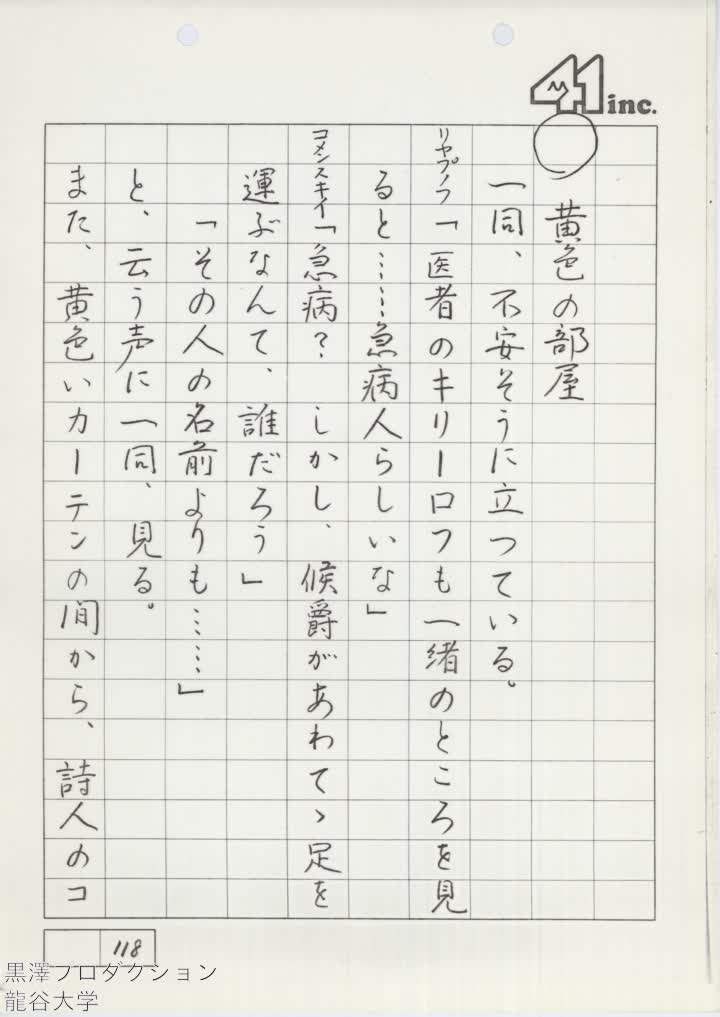 41 inc.
○ 黄色の部屋
一同、不安そうに立つている。
リヤプノフ「医者のキリーロフも一緒のところを見
ると……急病人らしいな」
コメンスキイ「急病? しかし、候爵があわてゝ足を
運ぶなんて、誰だろう」
「その人の名前よりも……」
と、云う声に一同、見る。
また、黄色いカーテンの間から、詩人のコ
118
黒澤プロダクション
龍谷大学